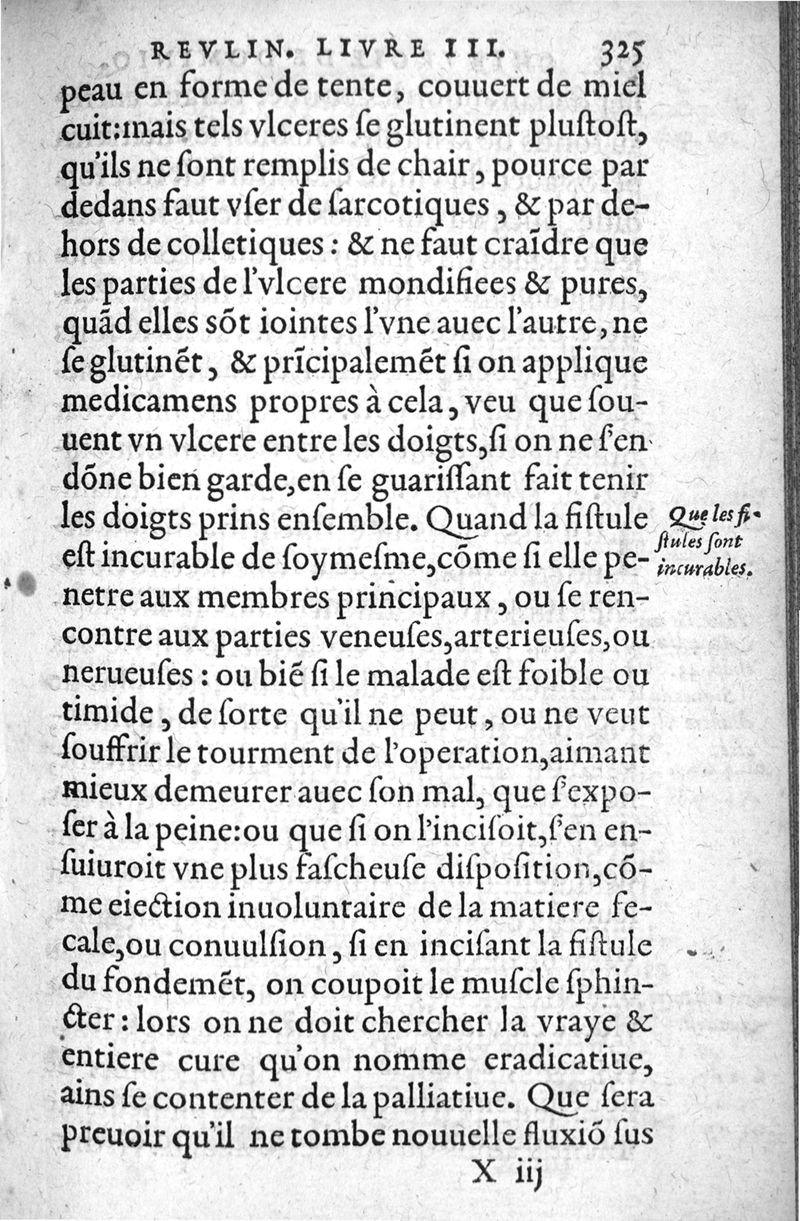 REVLIN. LIVRE III. 325
peau en forme de tente, couuert de miel
cuit:mais tels vlceres ſe glutinent pluſtoſt,
qu'ils ne ſont remplis de chair, pource par
dedans faut vſer de ſarcotiques, & par de-
hors de colletiques : & ne faut craĩdre que
les parties de l'vlcere mondifiees & pures,
quãd elles sõt iointes l'vne auec l'autre, ne
ſe glutinẽt, & prĩcipalemẽt ſi on applique
medicamens propres à cela, veu que ſou-
uent vn vlcere entre les doigts,ſi on ne ſ'en
dõne bien garde,en ſe guariſſant fait tenir
les doigts prins enſemble. Quand la fiſtule
eſt incurable de ſoymeſme,cõme ſi elle pe-
netre aux membres principaux, ou ſe ren-
contre aux parties veneuſes,arterieuſes,ou
nerueuſes : ou biẽ ſi le malade eſt foible ou
timide, de ſorte qu'il ne peut, ou ne veut
ſouffrir le tourment de l'operation,aimant
mieux demeurer auec ſon mal, que ſ'expo-
ſer à la peine:ou que ſi on l'inciſoit,ſ'en en-
ſuiuroit vne plus faſcheuſe diſpoſition,cõ-
me eiection inuoluntaire de la matiere fe-
cale,ou conuulſion, ſi en inciſant la fiſtule
du fondemẽt, on coupoit le muſcle ſphin-
cter: lors on ne doit chercher la vraye &
entiere cure qu'on nomme eradicatiue,
ains ſe contenter de la palliatiue. Que ſera
preuoir qu'il ne tombe nouuelle fluxiõ ſus
X iij
Que les fi-
ſtules ſont
incurables.